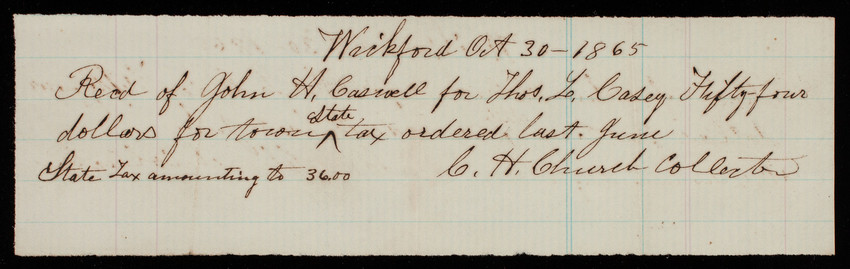 Wickford Oct 30 - 1865
Recd of John H. Caswell for Thos. L. Casey Fifty-four
dollars for town ^ State tax ordered last June
State Tax amounting to 36.00 C. H. Church Collector